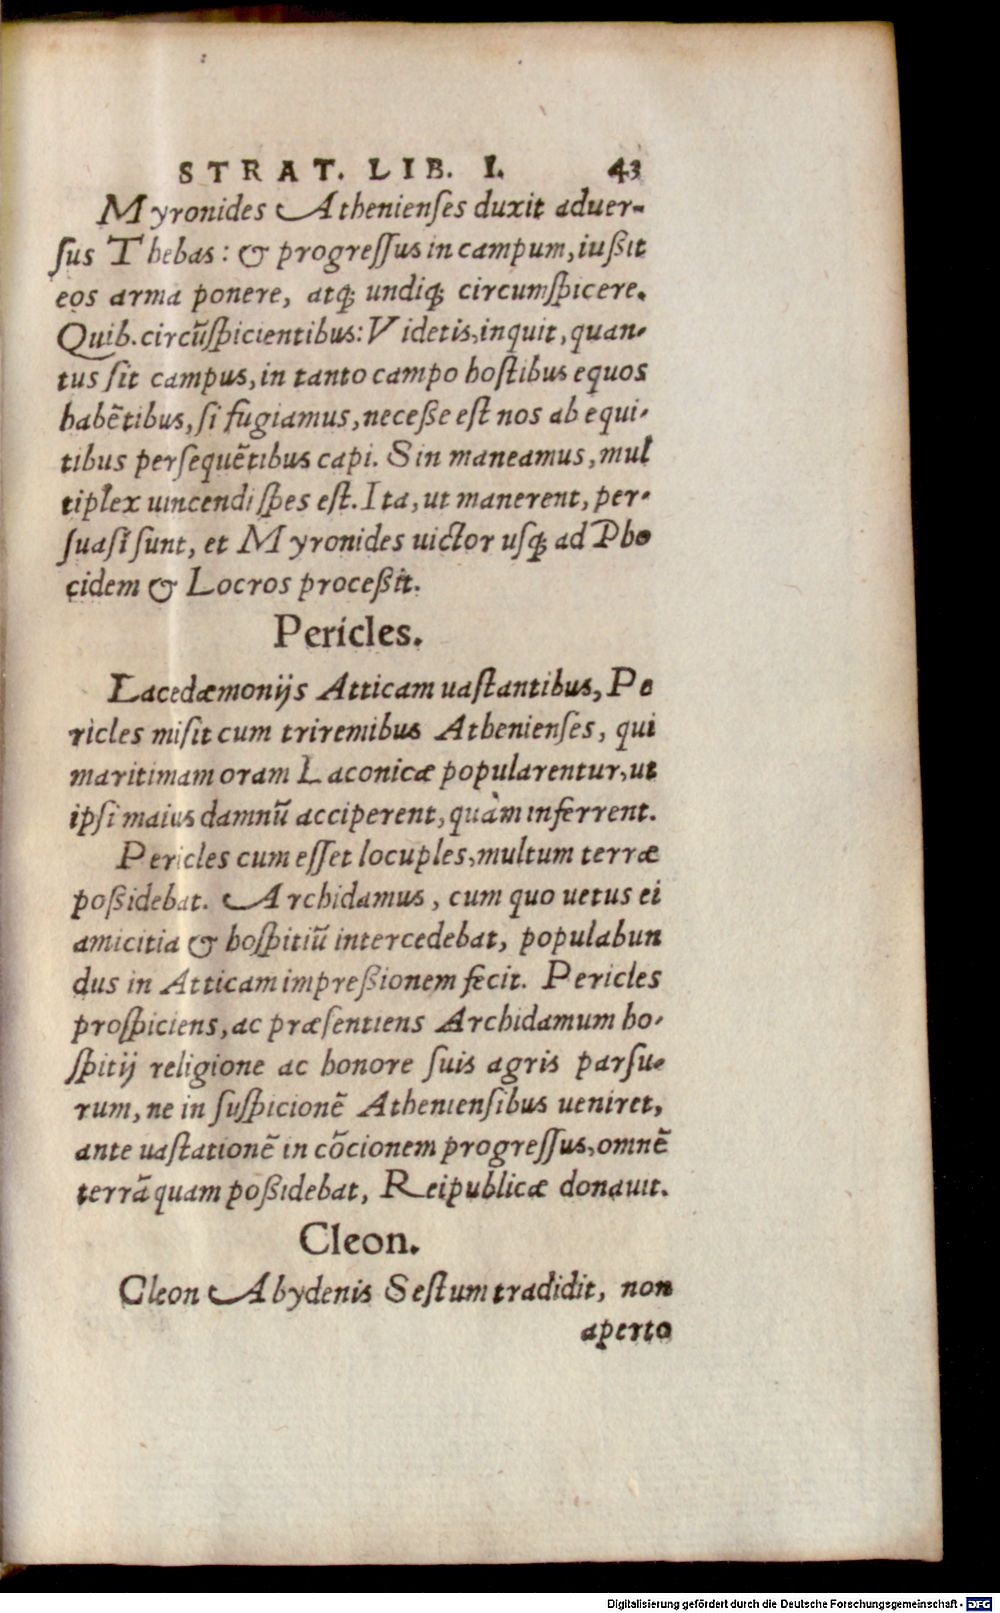 STRAT. LIB. I. 43
Myronides Athenienses duxit aduer-
sus Thebas: & progressus in campum, iußit
eos arma ponere, atq; undiq; circumspicere.
Quib. circũspicientibus: Videtis, inquit, quan-
tus sit campus, in tanto campo hostibus equos
habẽtibus, si fugiamus, neceße est nos ab equi-
tibus persequẽtibus capi. Sin maneamus, mul
tiplex uincendi spes est. Ita, ut manerent, per-
suasi sunt, et Myronides uictor usq; ad Pho
cidem & Locros proceßit.
Pericles.
Lacedæmonijs Atticam uastantibus, Pe
ricles misit cum triremibus Athenienses, qui
maritimam oram Laconicæ popularentur, ut
ipsi maius damnũ acciperent, quàm inferrent.
Pericles cum esset locuples, multum terræ
poßidebat. Archidamus, cum quo uetus ei
amicitia & hospitiũ intercedebat, populabun
dus in Atticam impreßionem fecit. Pericles
prospiciens, ac præsentiens Archidamum ho-
spitij religione ac honore suis agris parsu-
rum, ne in suspicionẽ Atheniensibus ueniret,
ante uastationẽ in cõcionem progressus, omnẽ
terrã quam poßidebat, Reipublicæ donauit.
Cleon.
Cleon Abydenis Sestum tradidit, non
aperto
Digitalisierung gefördert durch die Deutsche Forschungsgemeinschaft - DFG